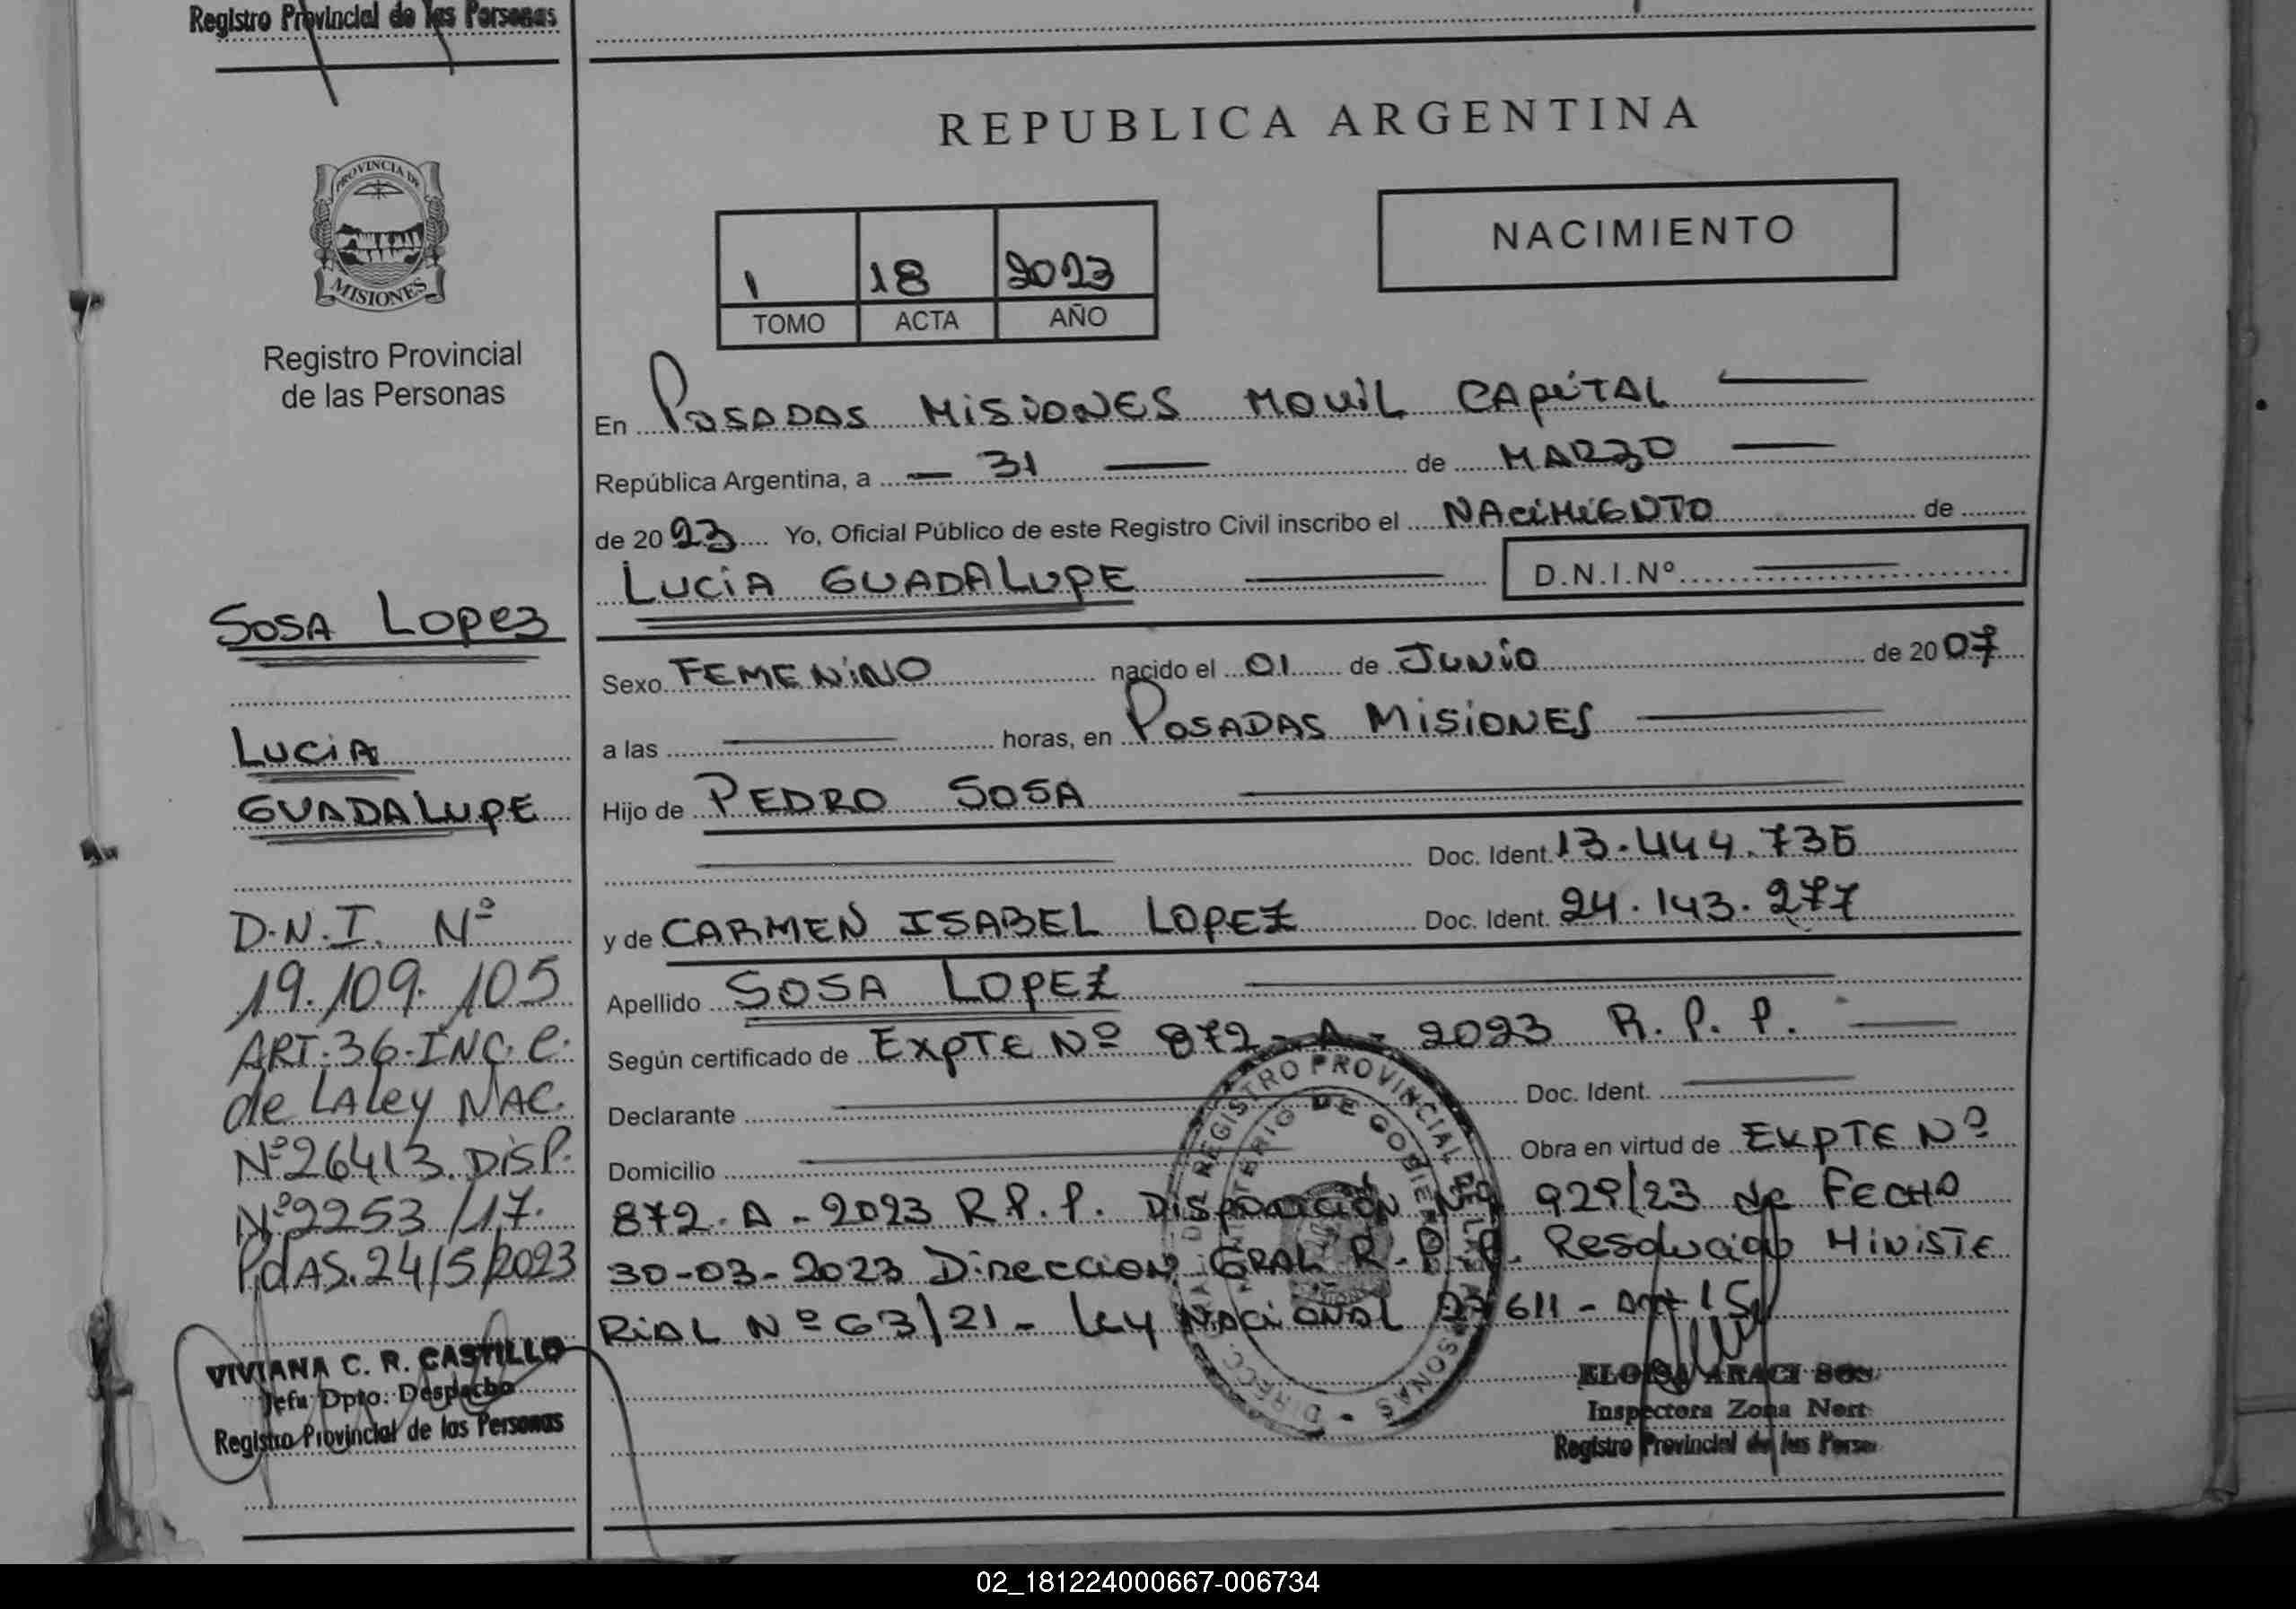 Registro Provincial de las Personas
PROVINCIA DE
MISIONES
Registro Provincial
de las Personas
SOSA LOPEZ
LUCIA
GUADALUPE
D.N.I. Nº
19.109.105
ART.36-INC.C.
de LA Ley NAC.
Nº26413.DISP.
Nº2253/17.
PdAS.24/5/2023
VIVIANA C. R. CASTILLO
Jefa Dpto. Despacho
Registro Provincial de las Personas
REPUBLICA ARGENTINA
NACIMIENTO
1 18 2023
TOMO ACTA AÑO
En POSADAS MISIONES MOVIL CAPITAL
República Argentina, a 31 de MARZO
de 2023 Yo, Oficial Público de este Registro Civil inscribo el NACIMIENTO de
LUCIA GUADALUPE D.N.I.Nº
Sexo FEMENINO nacido el 01 de JUNIO de 2007
a las horas, en POSADAS MISIONES
Hijo de PEDRO SOSA
Doc. Ident. 13.444.735
y de CARMEN ISABEL LOPEZ Doc. Ident. 24.143.277
Apellido SOSA LOPEZ
Según certificado de EXPTE Nº 872-A-2023 R.P.P.
Declarante Doc. Ident.
Domicilio Obra en virtud de EXPTE Nº
872-A-2023 R.P.P. DISPOSICIÓN Nº 929/23 de FECHA
30-03-2023 DIRECCION GRAL R.P.P. Resolución MINISTE
RIAL Nº 63/21- Ley NACIONAL 27611-Art 15
DIRECC. GRAL. DE REGISTRO PROVINCIAL DE LAS PERSONAS
MINISTERIO DE GOBIERNO
ARACI
Inspectora Zona Nort
Registro Provincial de las Perso
02_181224000667-006734